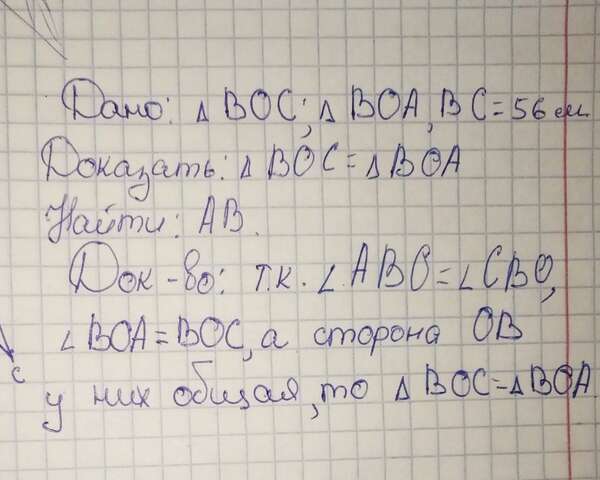 Дано: △ BOC; △ BOA, BC = 56 см
Доказать: △ BOC = △ BOA
Найти: AB.
Док-во: т.к. ∠ ABO = ∠ CBO,
∠ BOA = BOC, а сторона OB
C
у них общая, то △ BOC = △ BOA